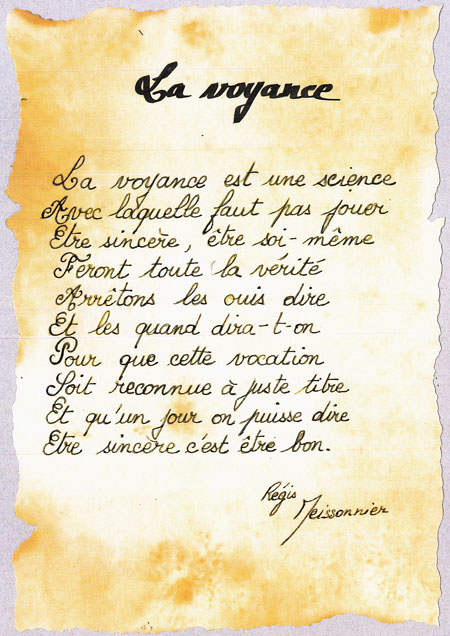 La voyance
La voyance est une science
Avec laquelle faut pas jouer
Etre sincère, être soi-même
Feront toute la vérité
Arrêtons les ouis dire
Et les quand dira-t-on
Pour que cette vocation
Soit reconnue à juste titre
Et qu'un jour on puisse dire
Etre sincère c'est être bon.
Régis
Meissonnier